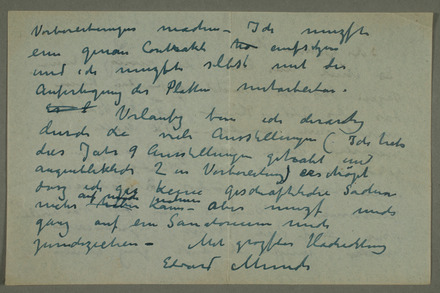 Vorbereitungen machen – Ich müsste
ein genau Contrakt aufsetzen
und ich müsste selbst mit der
Anfertigung der Platten mitarbeiten.
Vorläufig bin ich derartig
durch die viele Ausstellungen (Ich habe
dies Jahr 9 Ausstellungen gehabt und
augenblicklich 2 in Vorbereitung) erschöpft
dass ich gar keine geschäftliche Sachen
mehr kann – aber muss mich
ganz auf ein Sanatorium
zurückziehen – Mit grösster Hochachtung
Edvard Munch